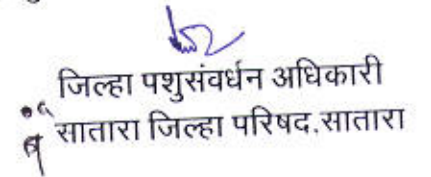 जिल्हा पशुसंवर्धन अधिकारी
सातारा जिल्हा परिषद.सातारा